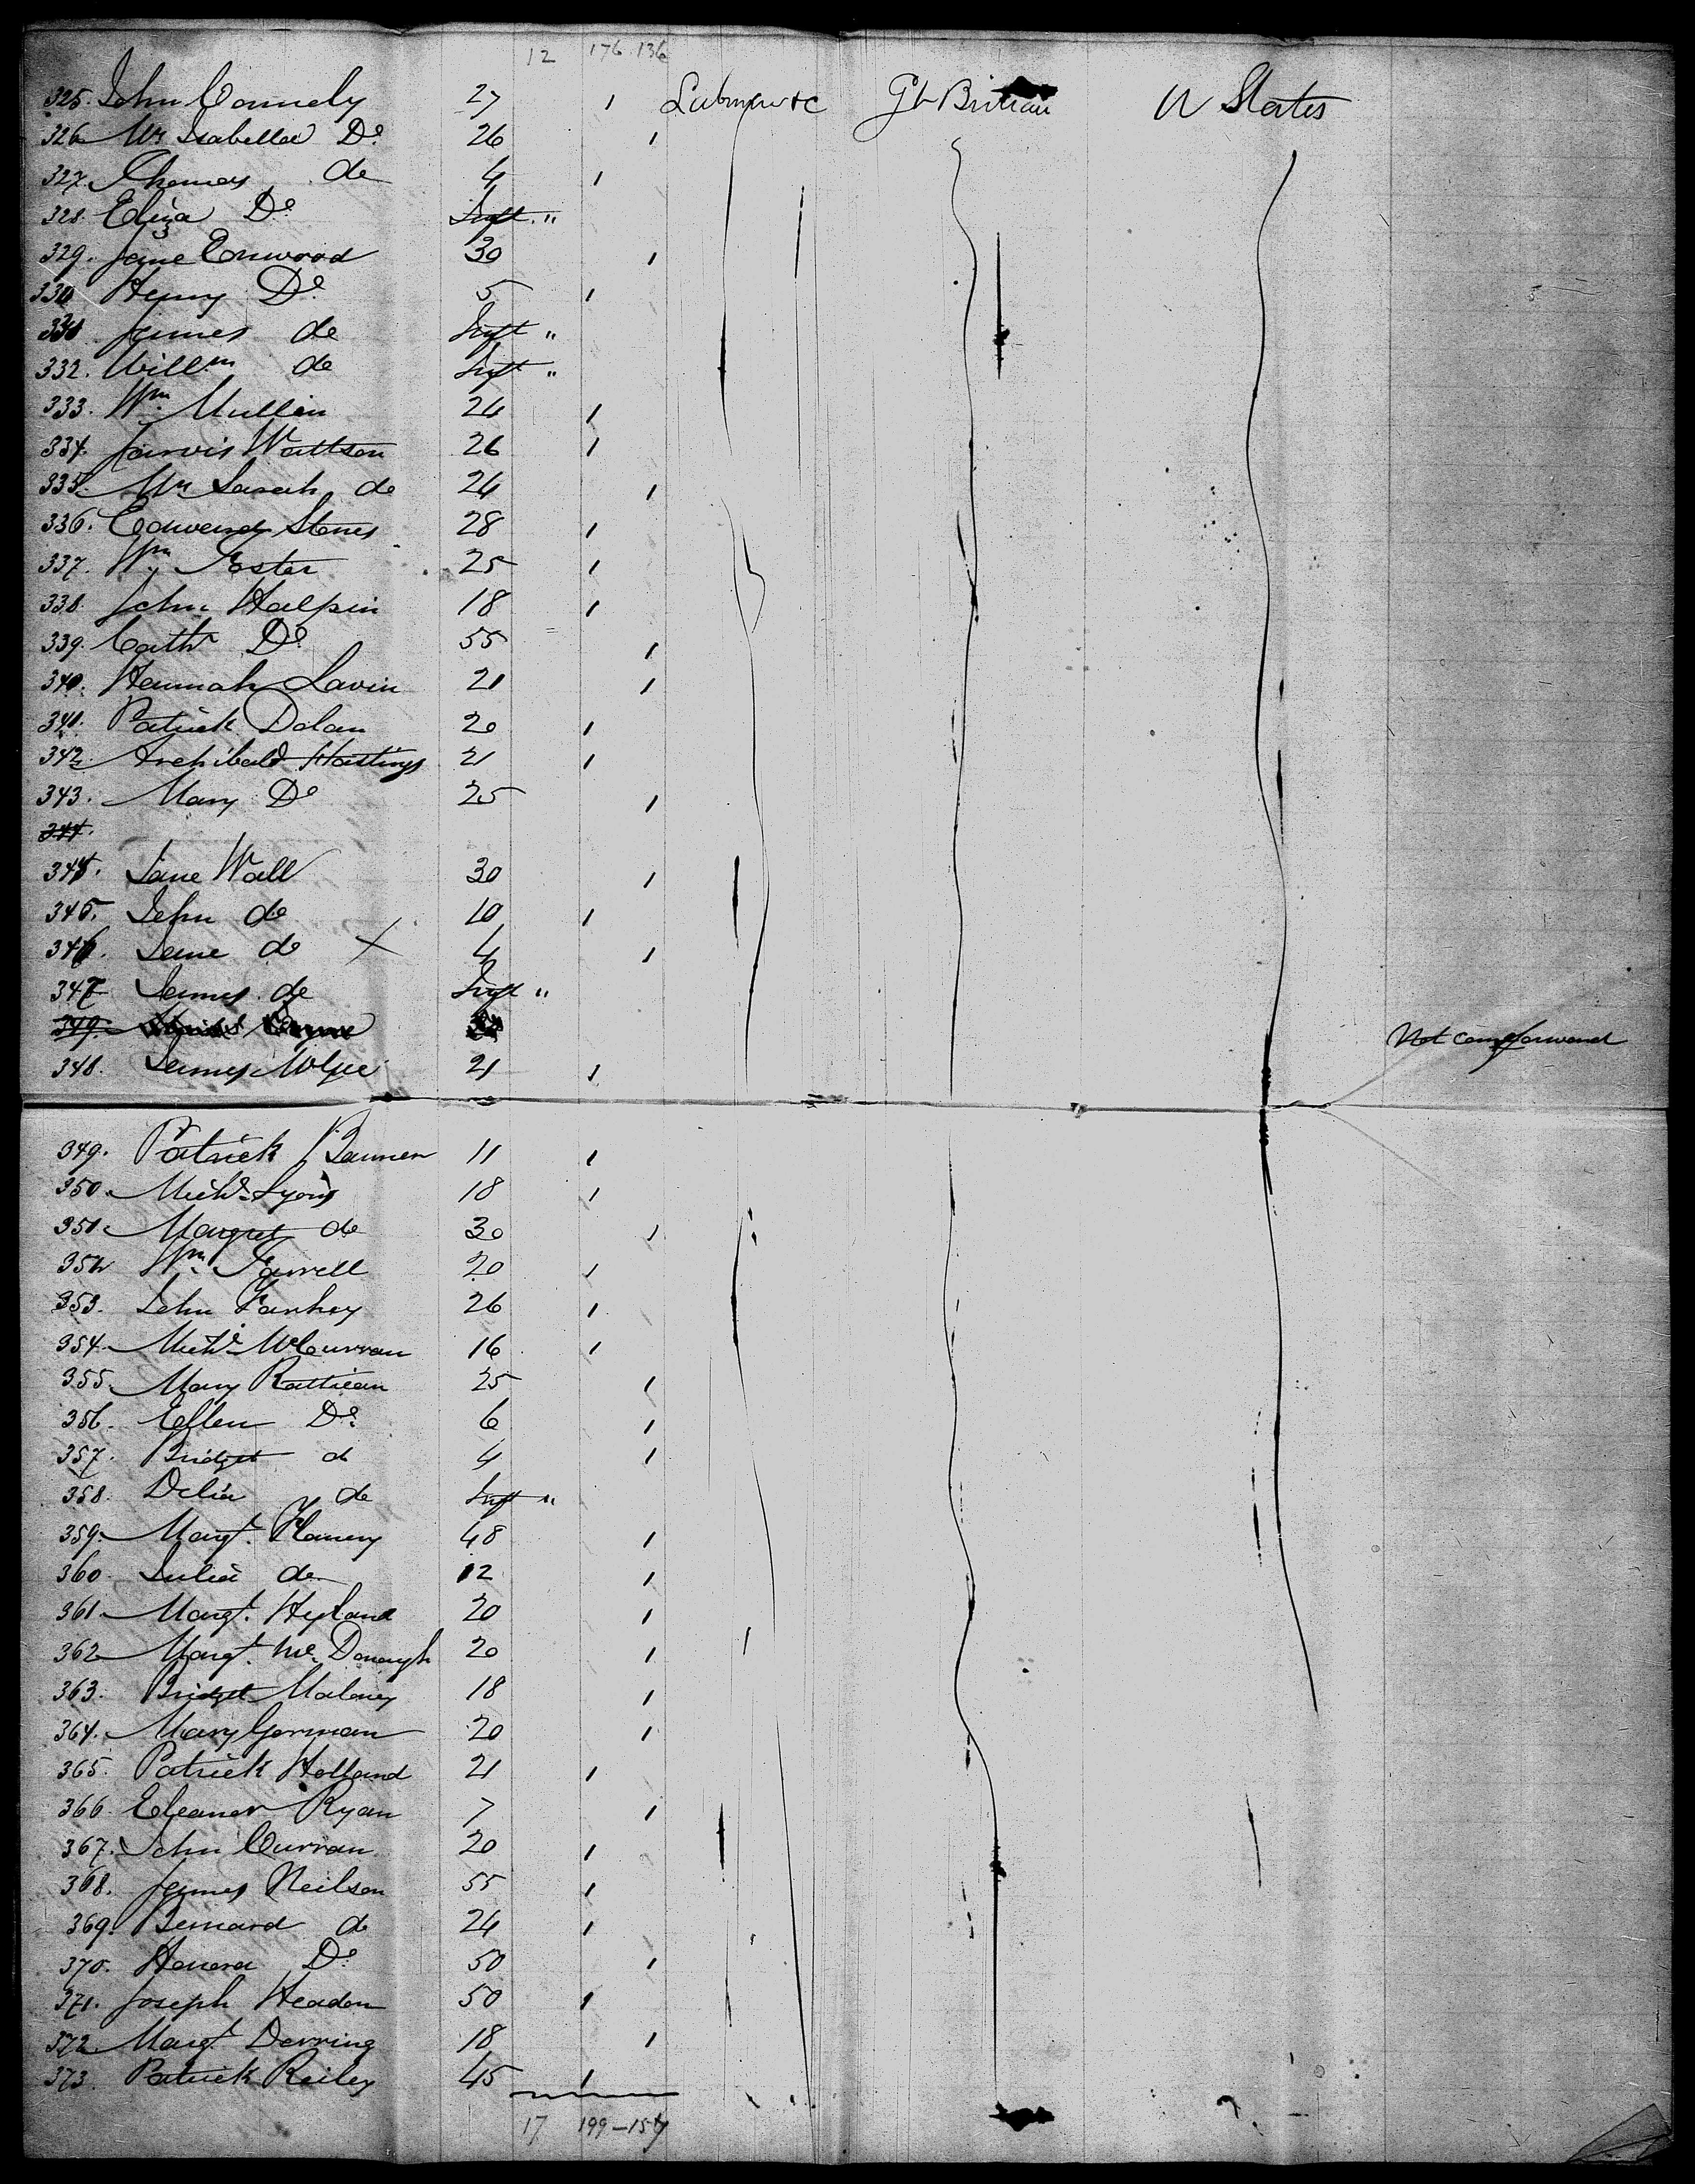 12 176 136
325. John Connely 27 1 Labourer &c Gt Britian U States
326 Mrs Isabella Do 26 1
327. Thomas do 4 1
328. Eliza Do Inft "
329. Jane Enwood 30 1
330 Henry Do 5 1
331 James do Inft "
332. Willm do Inft "
333. Wm Mullin 24 1
334. Jarvis Wattson 26 1
335. Mrs Sarah do 24 1
336. Edward Stones 28 1
337. Wm Foster 25 1
338. John Halpin 18 1
339. Cathr Do 55 1
340. Hannah Lavin 21 1
341. Patrick Dolan 20 1
342. Archibald Hastings 21 1
343. Mary Do 25 1
344.
344. Jane Wall 30 1
345. John do 10 1
346. Jane do X 4 1
347 James do Inft "
349. Not came forward
348. James McGee 21 1
349. Patrick Banner 11 1
350. Michl Lyons 18 1
351. Margret do 30 1
352 Wm Farrell 20 1
353. John Fanhey 26 1
354. Michl McCurran 16 1
355. Mary Rattican 25 1
356. Ellen Do 6 1
357. Bridget do 4 1
358. Delia do Inft "
359. Margt. Flanery 48 1
360. Julia do 12 1
361. Margt. Hyland 20 1
362 Margt. McDonaugh 20 1
363. Bridget Maloney 18 1
364. Mary Gorman 20 1
365. Patrick Holland 21 1
366. Eleanor Ryan 7 1
367. John Curran 20 1
368. James Neilson 55 1
369. Bernard do 24 1
370. Honora Do 50 1
371. Joseph Headon 50 1
372 Margt Derring 18 1
373. Patrick Reiley 45 1
17 199-157